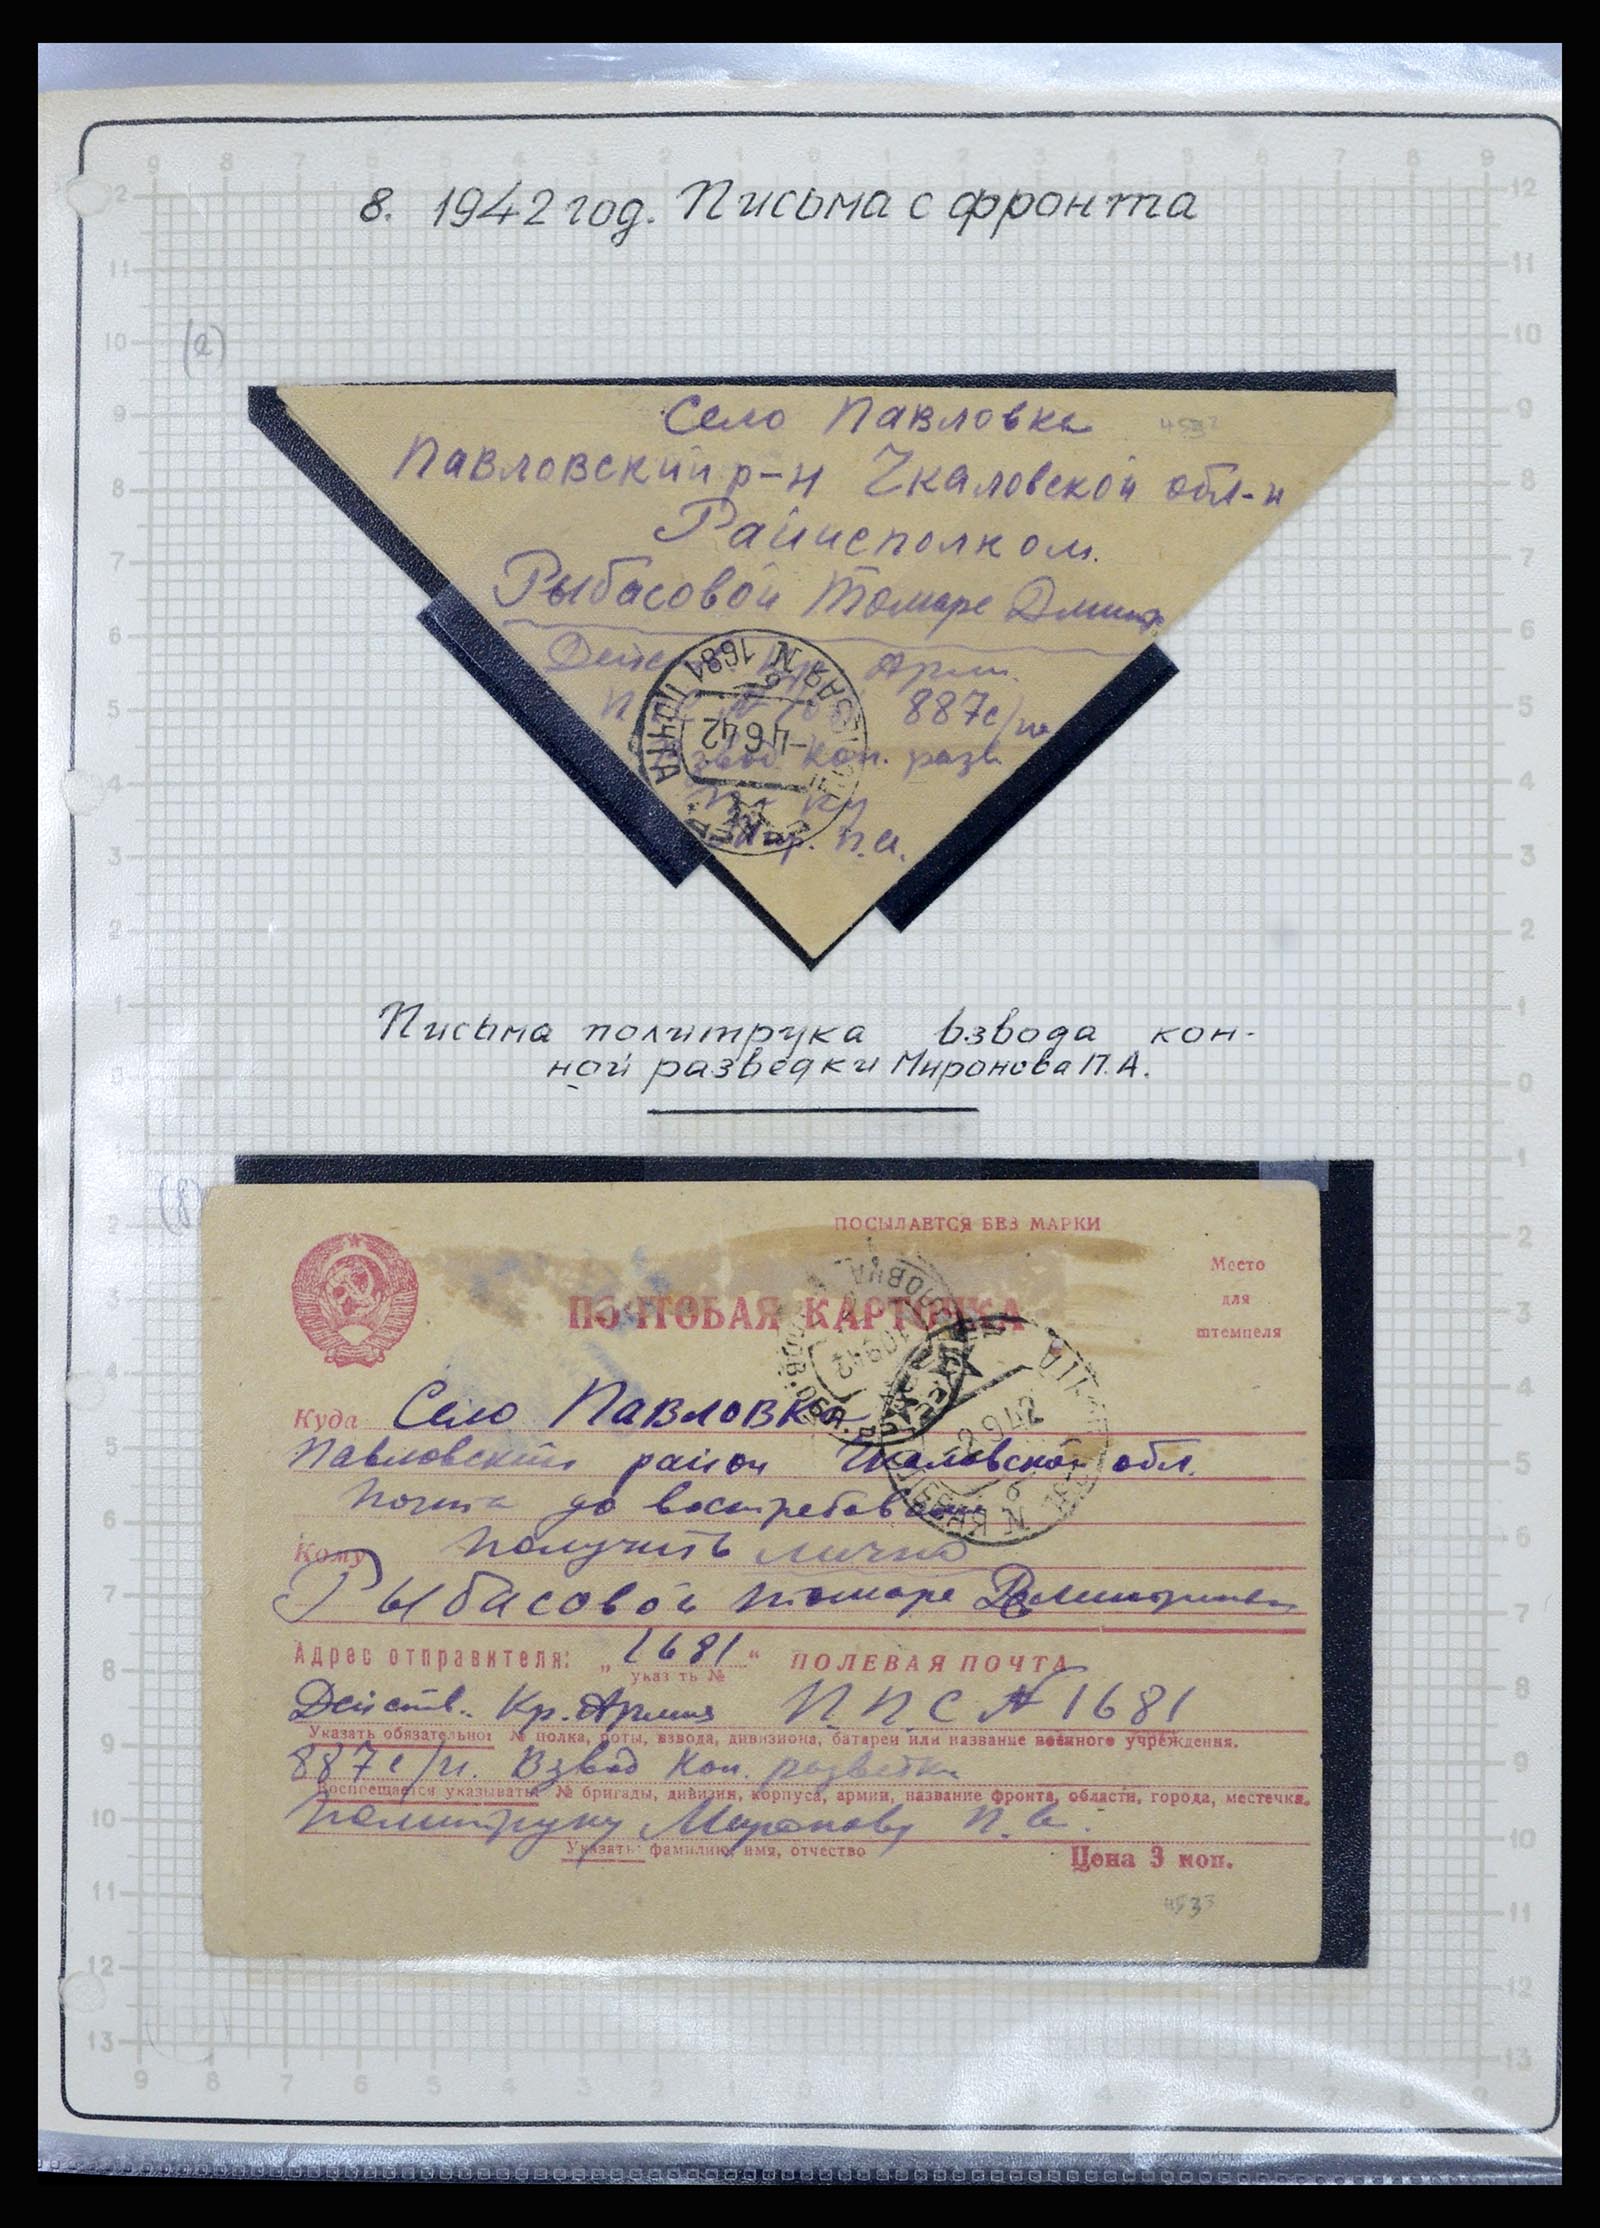 8. 1942 год. Письма с фронта
(а)
Село Павловка
4533
Павловский р-н Чкаловской обл-и
Райисполком.
Рыбасовой Томаре Дмит
Арм.
887 с/п
Взвод Кон. разв.
П.А.
ПОЧТА
N 1681
-4 6 42
Письма политрука взвода кон-
ной разведки Миронова П.А.
ПОСЫЛАЕТСЯ БЕЗ МАРКИ
Место
для
штемпеля
ПОЧТОВАЯ КАРТОЧКА
2 9 42
Куда Село Павловка
Павловский район Чкаловской обл.
Почта до востребован
Кому Получить лично
Рыбасовой Томаре Дмитриевн
Адрес отправителя: „1681“ ПОЛЕВАЯ ПОЧТА
указать №
Действ. Кр. Армия П.П.С № 1681
Указать обязательно: № полка, роты, взвода, дивизиона, батареи или название военного учреждения.
887 с/п. Взвод Кон. разветки
Воспрещается указывать: № бригады, дивизии, корпуса, армии, название фронта, области, города, местечка.
Политруку Миронову П.А.
Указать: фамилию, имя, отчество
Цена 3 коп.
4533